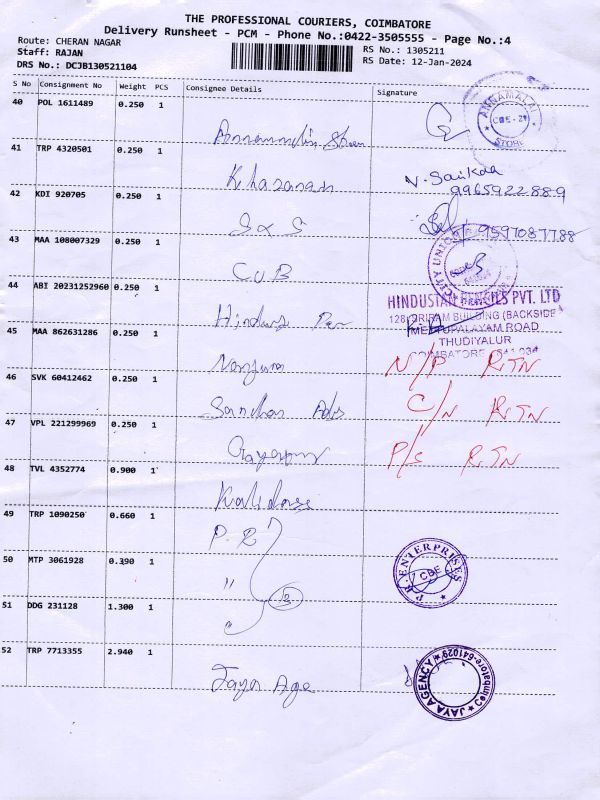 THE PROFESSIONAL COURIERS, COIMBATORE
Delivery Runsheet - PCM - Phone No.:0422-3505555 - Page No.:4
Route: CHERAN NAGAR
RS No.: 1305211
Staff: RAJAN
RS Date: 12-Jan-2024
DRS No.: DCJB130521104
S No Consignment No Weight PCS Consignee Details Signature
40 POL 1611489 0.250 1
ANNAMALAI
CBE-29
STORE
41 TRP 4320501 0.250 1
N. Saikaa
9965922889
42 KDI 920705 0.250 1 S & S
9597087788
43 MAA 108007329 0.250 1 CUB
CITY UNION
44 ABI 20231252960 0.250 1 Hindus Pen
HINDUSTAN PENCILS PVT. LTD
128, SRIRAM BUILDING (BACKSIDE)
METTUPALAYAM ROAD
THUDIYALUR
COIMBATORE - 641 034
45 MAA 862631286 0.250 1 N/P RTN
46 SVK 60412462 0.250 1 C/N RTN
47 VPL 221299969 0.250 1 P/S RTN
48 TVL 4352774 0.900 1 Kalidass
49 TRP 1090250 0.660 1 P.R
50 MTP 3061928 0.390 1 "
3
P.R. ENTERPRISES
CBE
51 DDG 231128 1.300 1 "
52 TRP 7713355 2.940 1 Jaya Age
JAYA AGENCY
Coimbatore-641029